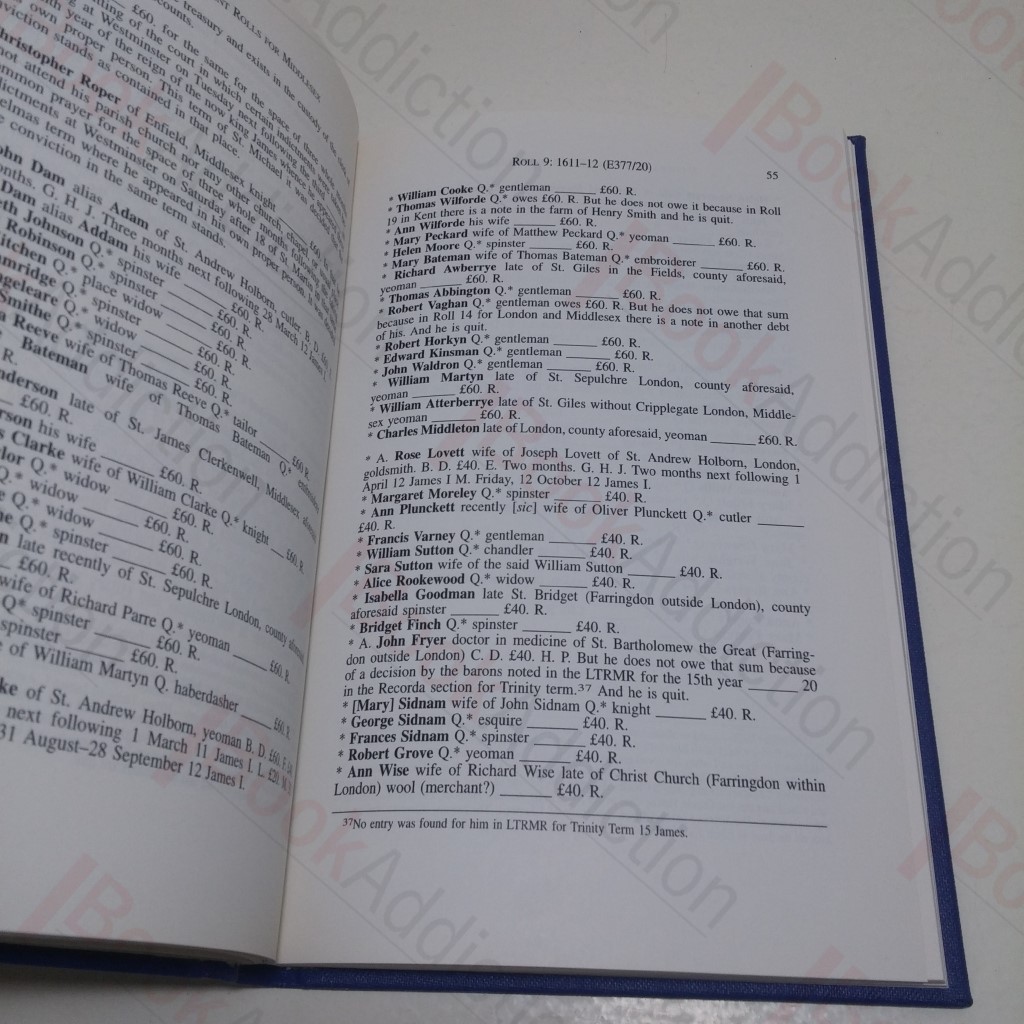 NT ROLLS FOR MIDDLESEX
treasury and exists in the custody of the
£60. for the same for the space of three
of the court in which certain indictments
at Westminster on Tuesday next following the
year of the reign of the now king James whence
own proper person. This term of St. Michael it was
viction stands as contained in that place.
hristopher Roper of Enfield, Middlesex knight
not attend his parish church nor any other church, chapel
ommon prayer for the space of three whole months
dictments at Westminster on Saturday after 18 of St.
elmas term where he appeared in his own proper person.
conviction in the same term stands.
ohn Dam alias Adam of St. Andrew Holborn, cutler, B. D.
onths. G. H. J. Three months next following 28 March 12 James I.
Dam alias Addam his wife ____ £60. R.
eth Johnson Q.* spinster ____ £60. R.
Robinson Q.* spinster ____ £60. R.
itchen Q.* place widow ____ £60. R.
Q.* spinster ____ £60. R.
Q.* widow ____ £60. R.
Smithe Q.* spinster ____ £60. R.
Reeve wife of Thomas Reeve Q.* tailor ____ £60. R.
Bateman wife of Thomas Bateman Q.*
R.
nderson late of St. James Clerkenwell, Middlesex
£60. R.
rson his wife ____ £60. R.
s Clarke wife of William Clarke Q.* knight ____ £60.
lor Q.* widow ____ £60. R.
Q.* widow ____ £60. R.
e Q.* widow ____ £60. R.
ne Q.* spinster ____ £60. R.
n late recently of St. Sepulchre London, county
£60. R.
wife of Richard Parre Q.* yeoman ____ £60. R.
Q.* spinster ____ £60. R.
spinster ____ £60. R.
e of William Martyn Q. haberdasher ____ £60. R.
ke of St. Andrew Holborn, yeoman B. D. £60.
next following 1 March 11 James I. L. £20.
31 August–28 September 12 James I.
ROLL 9: 1611–12 (E377/20) 55
* William Cooke Q.* gentleman ____ £60. R.
* Thomas Wilforde Q.* owes £60. R. But he does not owe it because in Roll
19 in Kent there is a note in the farm of Henry Smith and he is quit.
* Ann Wilforde his wife ____ £60. R.
* Mary Peckard wife of Matthew Peckard Q.* yeoman ____ £60. R.
* Helen Moore Q.* spinster ____ £60. R.
* Mary Bateman wife of Thomas Bateman Q.* embroiderer ____ £60. R.
* Richard Awberrye late of St. Giles in the Fields, county aforesaid,
yeoman ____ £60. R.
* Thomas Abbington Q.* gentleman ____ £60. R.
* Robert Vaghan Q.* gentleman owes £60. R. But he does not owe that sum
because in Roll 14 for London and Middlesex there is a note in another debt
of his. And he is quit.
* Robert Horkyn Q.* gentleman ____ £60. R.
* Edward Kinsman Q.* gentleman ____ £60. R.
* John Waldron Q.* gentleman ____ £60. R.
* William Martyn late of St. Sepulchre London, county aforesaid,
yeoman ____ £60. R.
* William Atterberrye late of St. Giles without Cripplegate London, Middle-
sex yeoman ____ £60. R.
* Charles Middleton late of London, county aforesaid, yeoman ____ £60. R.
* A. Rose Lovett wife of Joseph Lovett of St. Andrew Holborn, London,
goldsmith. B. D. £40. E. Two months. G. H. J. Two months next following 1
April 12 James I M. Friday, 12 October 12 James I.
* Margaret Moreley Q.* spinster ____ £40. R.
* Ann Plunckett recently [sic] wife of Oliver Plunckett Q.* cutler ____
£40. R.
* Francis Varney Q.* gentleman ____ £40. R.
* William Sutton Q.* chandler ____ £40. R.
* Sara Sutton wife of the said William Sutton ____ £40. R.
* Alice Rookewood Q.* widow ____ £40. R.
* Isabella Goodman late St. Bridget (Farringdon outside London), county
aforesaid spinster ____ £40. R.
* Bridget Finch Q.* spinster ____ £40. R.
* A. John Fryer doctor in medicine of St. Bartholomew the Great (Farring-
don outside London) C. D. £40. H. P. But he does not owe that sum because
of a decision by the barons noted in the LTRMR for the 15th year ____ 20
in the Recorda section for Trinity term.37 And he is quit.
* [Mary] Sidnam wife of John Sidnam Q.* knight ____ £40. R.
* George Sidnam Q.* esquire ____ £40. R.
* Frances Sidnam Q.* spinster ____ £40. R.
* Robert Grove Q.* yeoman ____ £40. R.
* Ann Wise wife of Richard Wise late of Christ Church (Farringdon within
London) wool (merchant?) ____ £40. R.
37No entry was found for him in LTRMR for Trinity Term 15 James.
BookAddiction